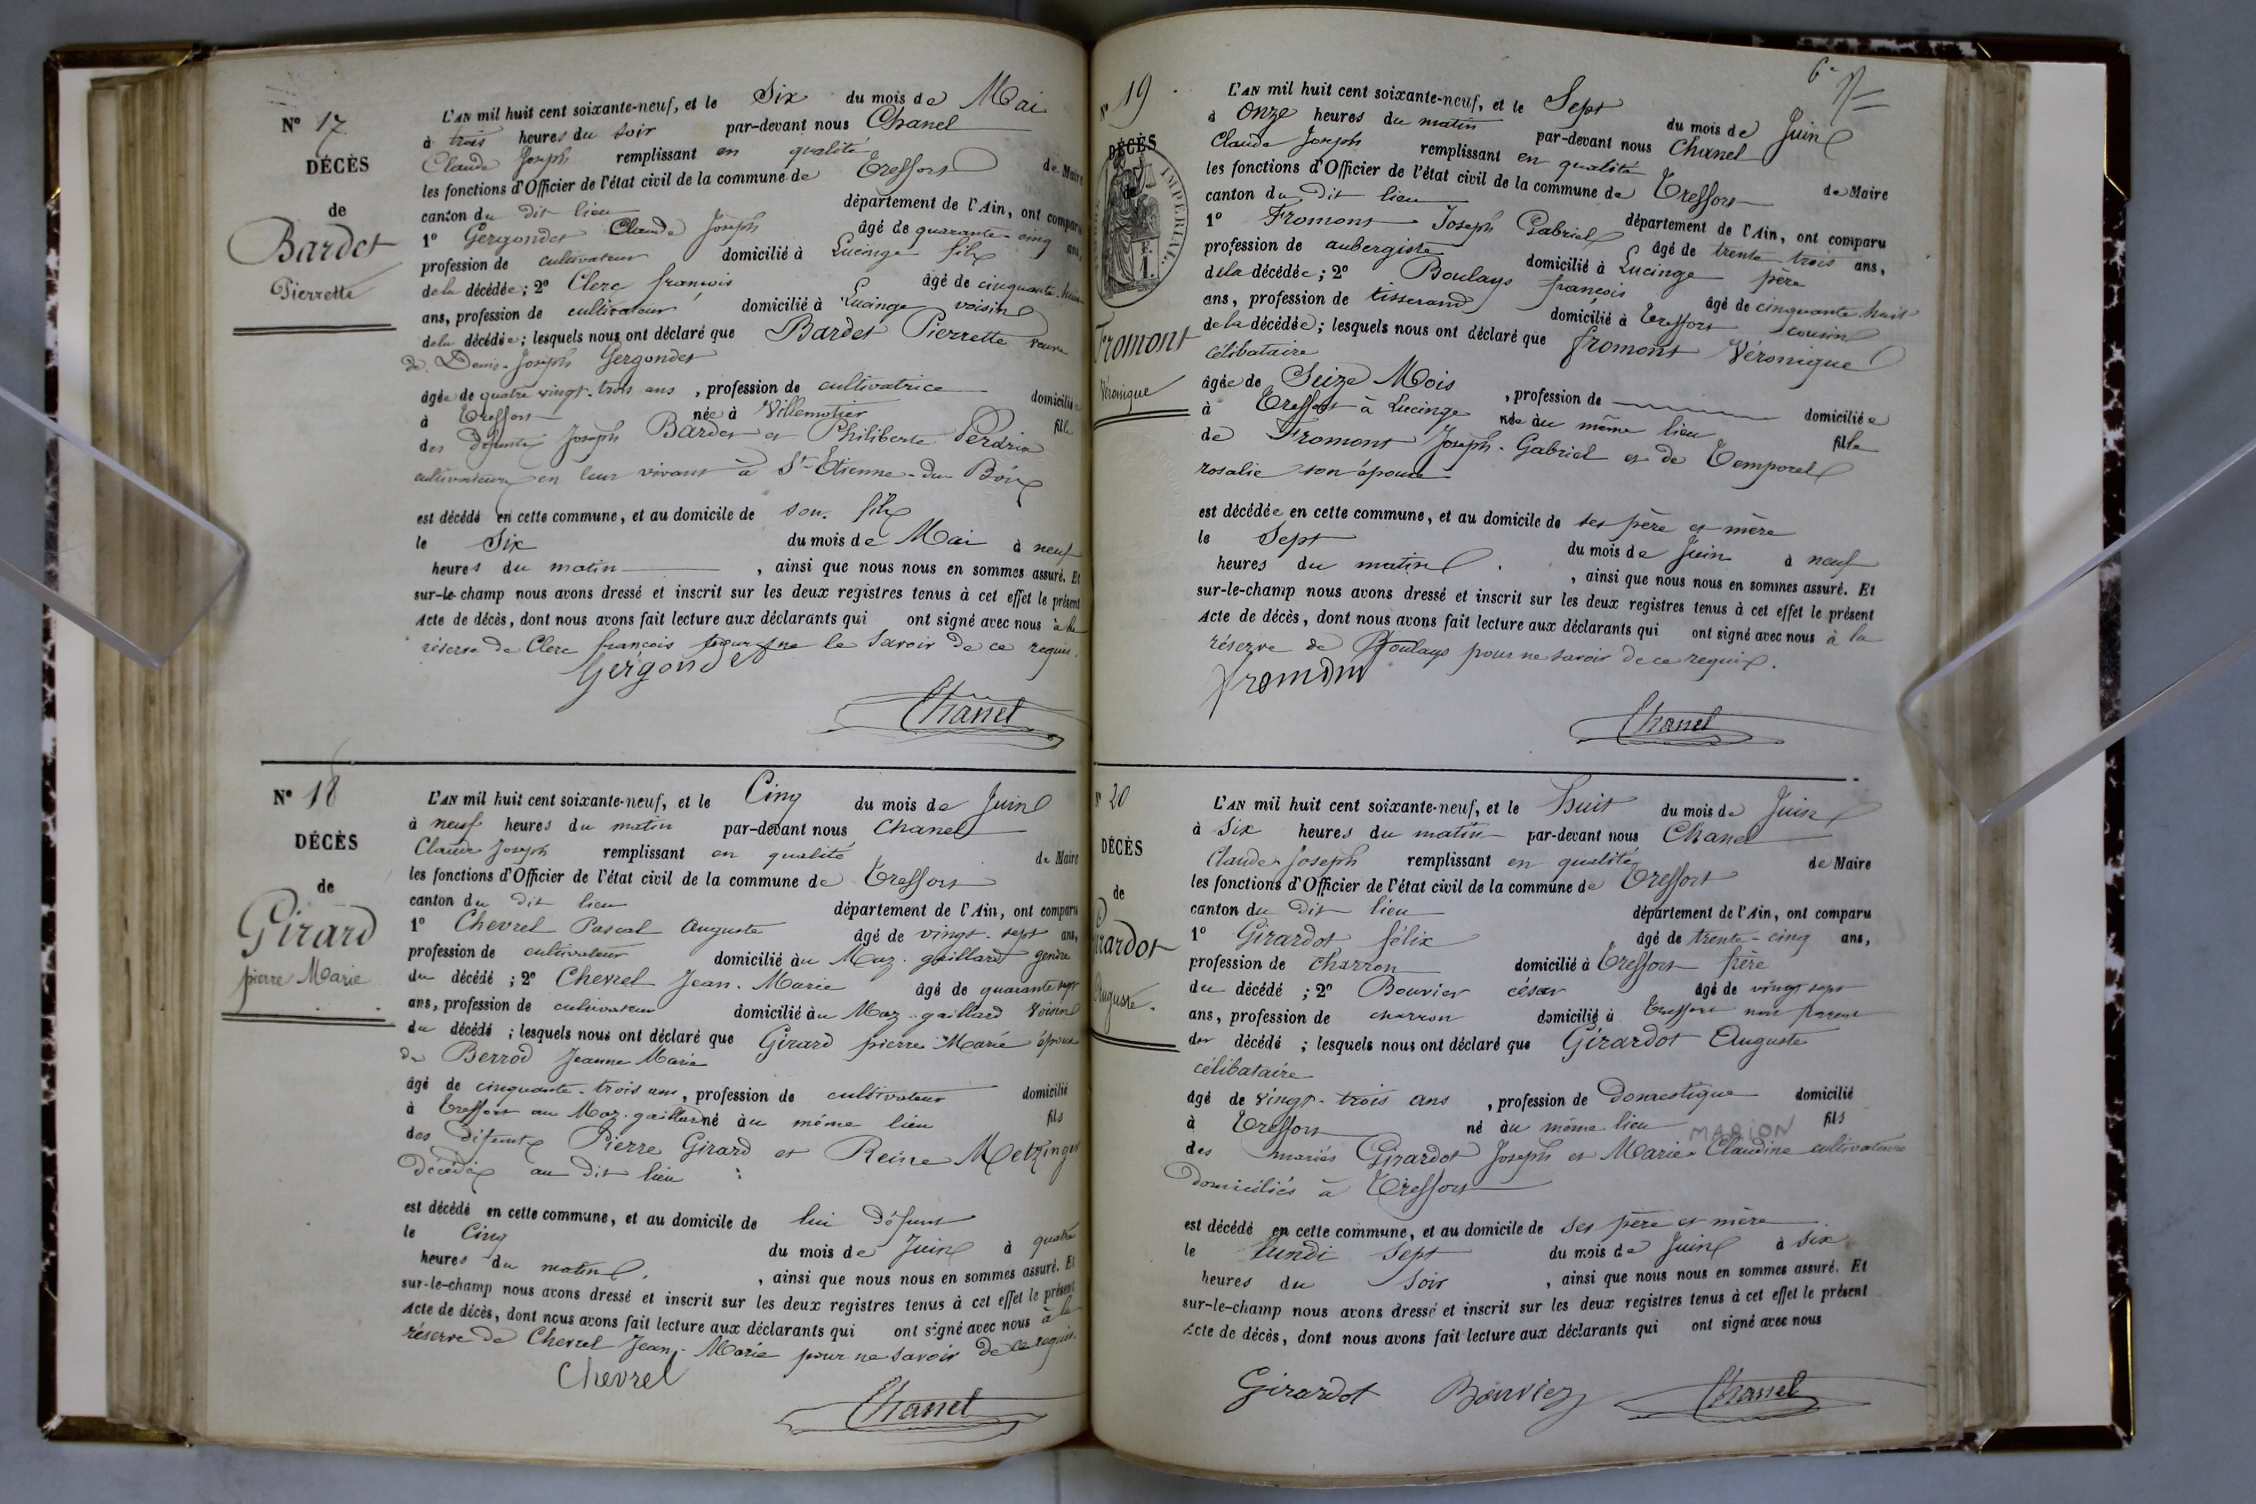 N° 17
DÉCÈS
de
Bardet
Pierrette
L'AN mil huit cent soixante-neuf, et le Six du mois de Mai
à trois heures du soir par-devant nous Chanel
Claude Joseph remplissant en qualité de Maire
les fonctions d'Officier de l'état civil de la commune de Treffort
canton du dit lieu département de l'Ain, ont comparu
1° Gergondet Claude Joseph âgé de quarante-cinq ans,
profession de cultivateur domicilié à Lucinge fils
de la décédée; 2° Clerc françois âgé de cinquante huit
ans, profession de cultivateur domicilié à Lucinge voisin
de la décédée; lesquels nous ont déclaré que Bardet Pierrette veuve
de Denis-Joseph Gergondet
âgée de quatre vingt-trois ans, profession de cultivatrice domiciliée
à Treffort née à Villemotier fille
des défunts Joseph Bardet et Philiberte Perdrix
cultivateurs en leur vivant à St-Etienne-du-Bois
est décédé en cette commune, et au domicile de son fils
le Six du mois de Mai à neuf
heures du matin, ainsi que nous nous en sommes assuré. Et
sur-le-champ nous avons dressé et inscrit sur les deux registres tenus à cet effet le présent
Acte de décès, dont nous avons fait lecture aux déclarants qui ont signé avec nous à la
réserve de Clerc françois pour ne le savoir de ce requis.
Gergondet
Chanel
N° 18
DÉCÈS
de
Girard
pierre Marie
L'AN mil huit cent soixante-neuf, et le Cinq du mois de Juin
à neuf heures du matin par-devant nous Chanel
Claude Joseph remplissant en qualité de Maire
les fonctions d'Officier de l'état civil de la commune de Treffort
canton du dit lieu département de l'Ain, ont comparu
1° Chevrel Pascal Auguste âgé de vingt-sept ans,
profession de cultivateur domicilié au Maz-gaillard gendre
du décédé; 2° Chevrel Jean-Marie âgé de quarante sept
ans, profession de cultivateur domicilié au Maz-gaillard voisin
du décédé; lesquels nous ont déclaré que Girard pierre Marie époux
de Berrod Jeanne Marie
âgé de cinquante-trois ans, profession de cultivateur domicilié
à Treffort au Maz-gaillard né au même lieu fils
des défunts Pierre Girard et Reine Metzinger
décédés au dit lieu
est décédé en cette commune, et au domicile de lui défunt
le Cinq du mois de Juin à quatre
heures du matin, ainsi que nous nous en sommes assuré. Et
sur-le-champ nous avons dressé et inscrit sur les deux registres tenus à cet effet le présent
Acte de décès, dont nous avons fait lecture aux déclarants qui ont signé avec nous à la
réserve de Chevrel Jean-Marie pour ne savoir de ce requis.
Chevrel
Chanel
6e
N° 19
DÉCÈS
IMPERIAL
Fromont
Véronique
L'AN mil huit cent soixante-neuf, et le Sept du mois de Juin
à Onze heures du matin par-devant nous Chanel
Claude Joseph remplissant en qualité de Maire
les fonctions d'Officier de l'état civil de la commune de Treffort
canton du dit lieu département de l'Ain, ont comparu
1° Fromont Joseph Gabriel âgé de trente-trois ans,
profession de aubergiste domicilié à Lucinge père
de la décédée; 2° Boulays françois âgé de cinquante huit
ans, profession de tisserand domicilié à Treffort cousin
de la décédée; lesquels nous ont déclaré que fromont Véronique
célibataire
âgée de Seize Mois, profession de domiciliée
à Treffort à Lucinge née au même lieu fille
de Fromont Joseph-Gabriel et de Temporel
rosalie son épouse
est décédée en cette commune, et au domicile de ses père et mère
le Sept du mois de Juin à neuf
heures du matin, ainsi que nous nous en sommes assuré. Et
sur-le-champ nous avons dressé et inscrit sur les deux registres tenus à cet effet le présent
Acte de décès, dont nous avons fait lecture aux déclarants qui ont signé avec nous à la
réserve de Boulays pour ne savoir de ce requis.
fromont
Chanel
N° 20
DÉCÈS
de
Girardot
Auguste.
L'AN mil huit cent soixante-neuf, et le huit du mois de Juin
à Six heures du matin par-devant nous Chanel
Claude Joseph remplissant en qualité de Maire
les fonctions d'Officier de l'état civil de la commune de Treffort
canton du dit lieu département de l'Ain, ont comparu
1° Girardot félix âgé de trente-cinq ans,
profession de charron domicilié à Treffort frère
du décédé; 2° Bouvier césar âgé de vingt sept
ans, profession de charron domicilié à Treffort non parent
du décédé; lesquels nous ont déclaré que Girardot Auguste
célibataire
âgé de vingt-trois ans, profession de Domestique domicilié
à Treffort né au même lieu fils
MARION
des mariés Girardot Joseph et Marie-Claudine cultivateurs
domiciliés à Treffort
est décédé en cette commune, et au domicile de ses père et mère
le lundi sept du mois de Juin à six
heures du soir, ainsi que nous nous en sommes assuré. Et
sur-le-champ nous avons dressé et inscrit sur les deux registres tenus à cet effet le présent
Acte de décès, dont nous avons fait lecture aux déclarants qui ont signé avec nous
Girardot Bouvier Chanel